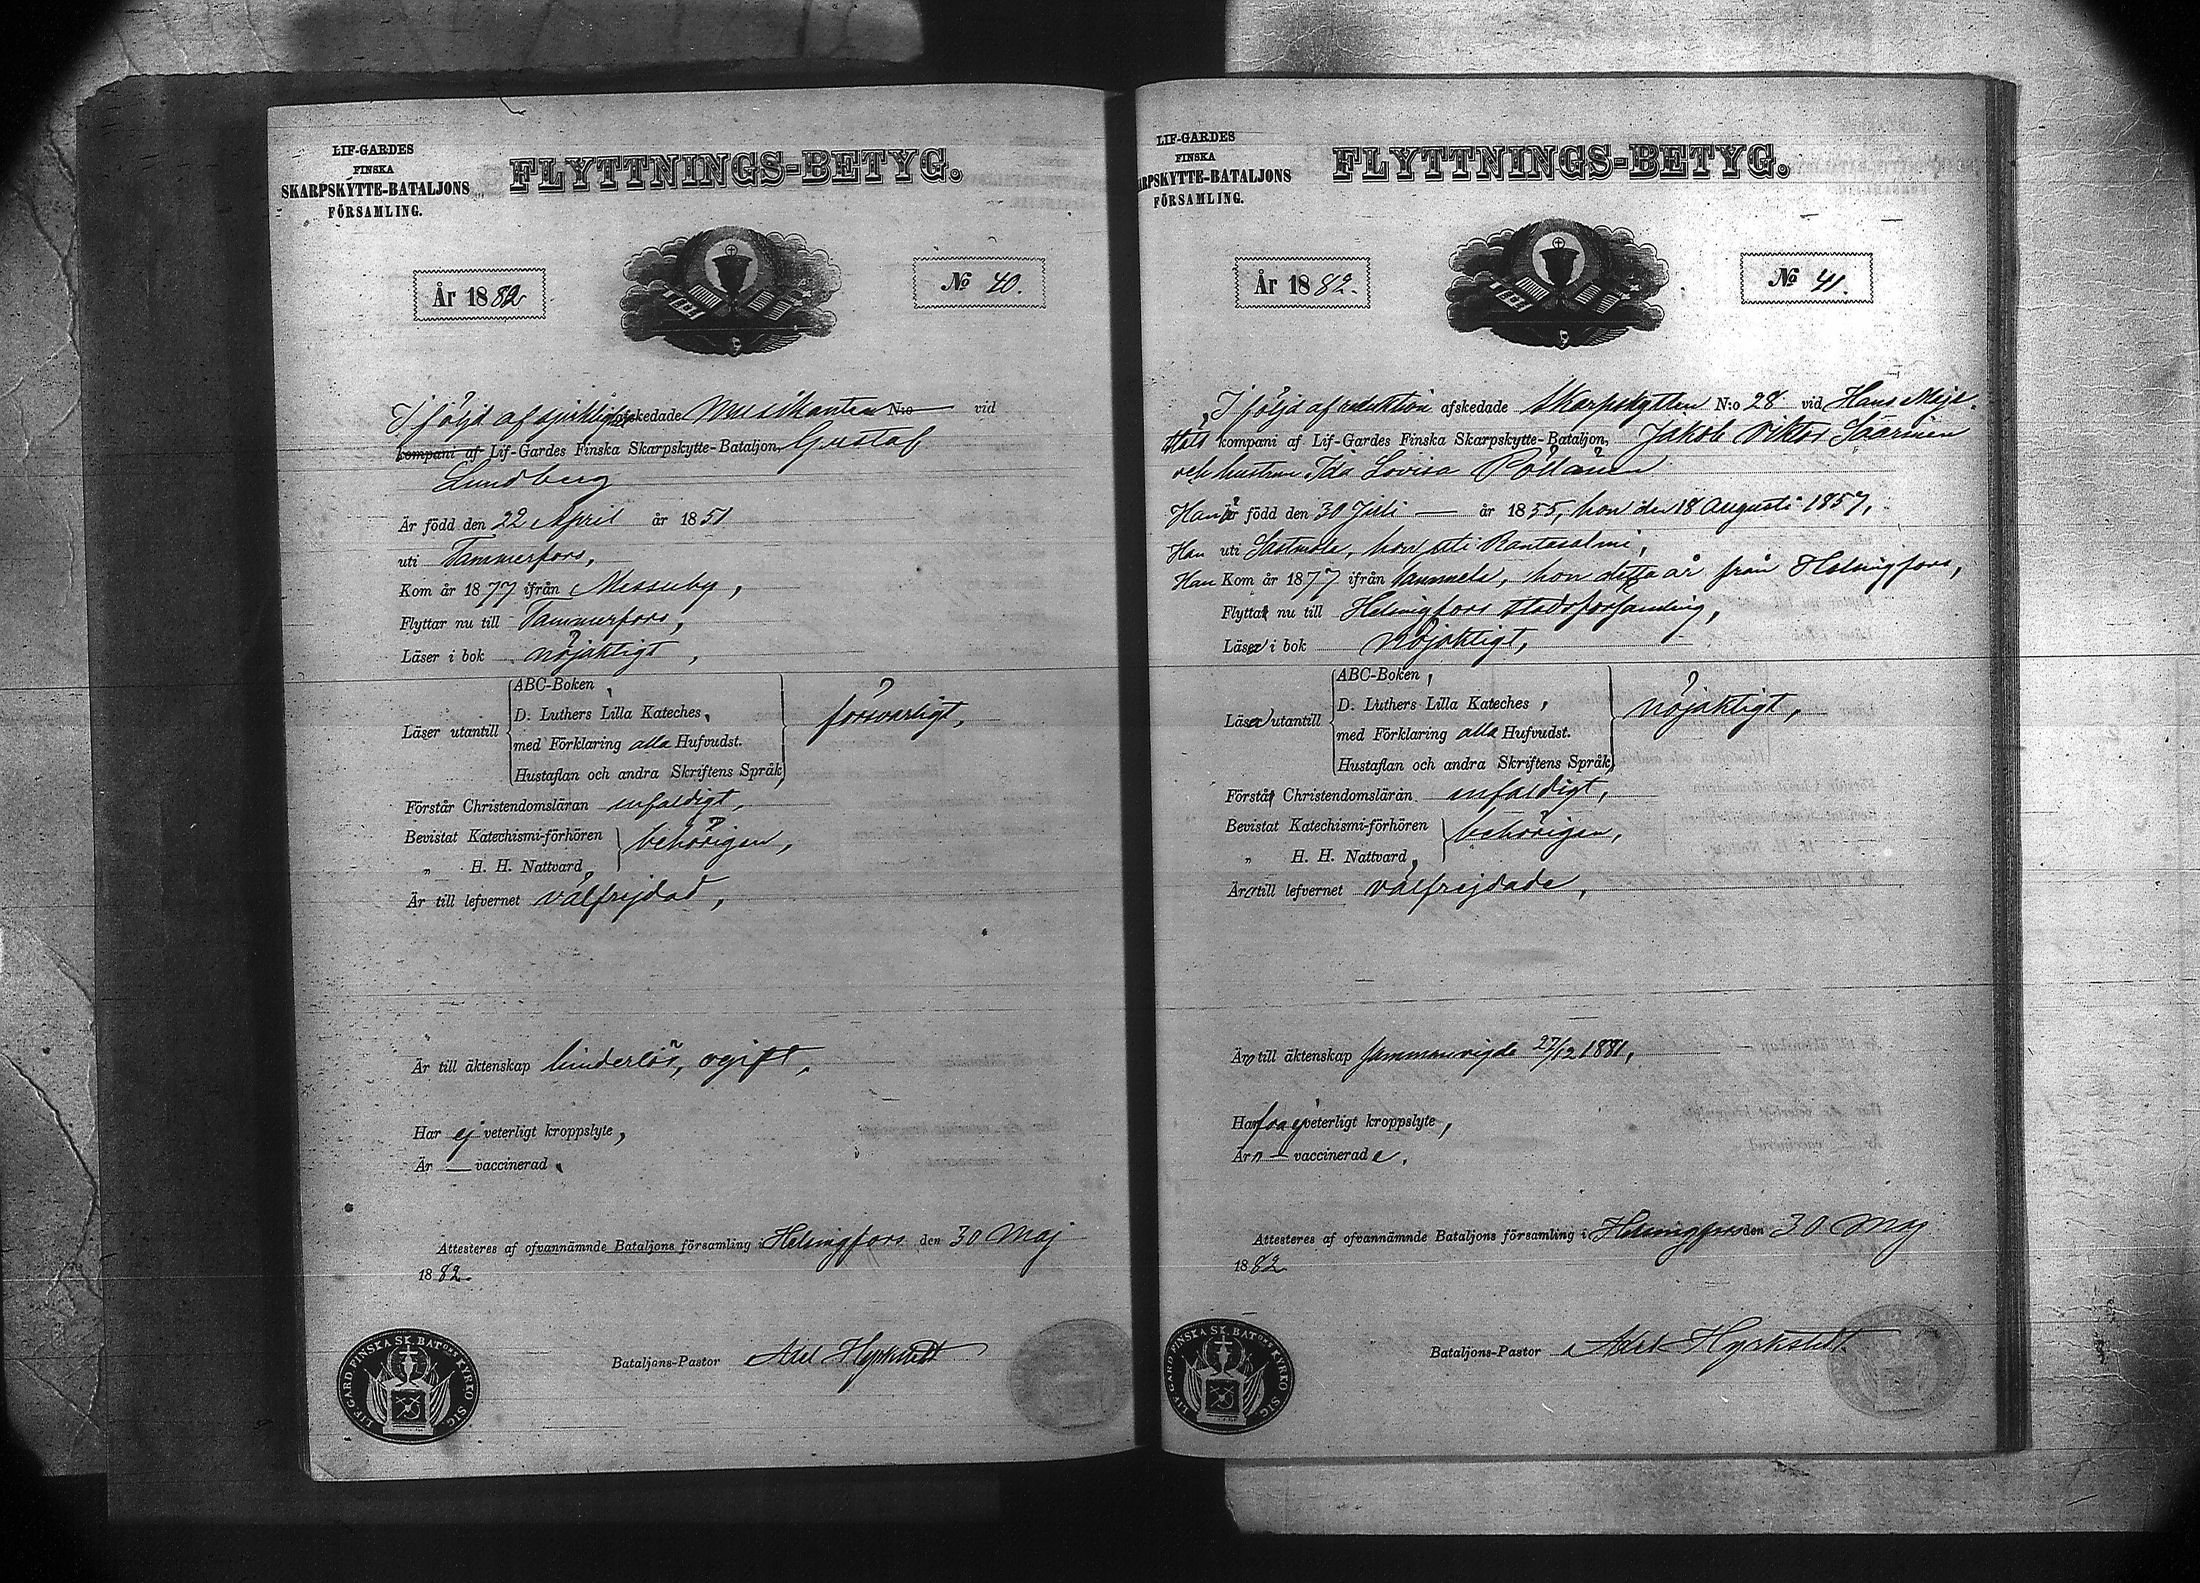 LIF-GARDES
FINSKA
SKARPSKYTTE-BATALJONS
FÖRSAMLING.
FLYTTNINGS-BETYG.
År 1882
№ 40.
I följd af sjuklighet afskedade Musikanten N:o vid
kompani af Lif-Gardes Finska Skarpskytte-Bataljon, Gustaf
Lundberg
Är född den 22 April år 1851
uti Tammerfors,
Kom år 1877 ifrån Messuby,
Flyttar nu till Tammerfors,
Läser i bok nöjaktigt,
Läser utantill
ABC-Boken,
D. Luthers Lilla Kateches,
med Förklaring alla Hufvudst.
Hustaflan och andra Skriftens Språk
försvarligt,
Förstår Christendomsläran enfaldigt,
Bevistat Katechismi-förhören
„ H. H. Nattvard,
behörigen,
Är till lefvernet välfrejdad,
Är till äktenskap hinderlös, ogift,
Har ej veterligt kroppslyte,
Är — vaccinerad.
Attesteres af ofvannämnde Bataljons församling i Helsingfors den 30 Maj
1882.
Bataljons-Pastor Axel Hyrkstedt
LIF-GARD. FINSKA SK. BATONS KYRKO SIG.
LIF-GARDES
FINSKA
RPSKYTTE-BATALJONS
FÖRSAMLING.
FLYTTNINGS-BETYG.
År 1882.
№ 41.
I följd af reduktion afskedade Skarpskytten N:o 28 vid Hans Maje-
stäts kompani af Lif-Gardes Finska Skarpskytte-Bataljon, Jakob Viktor Saarinen
och hustrun Ida Lovisa Pöllänen
Han är född den 30 Juli — år 1855, hon den 18 Augusti 1857,
Han uti Sastmola, hon uti Rantasalmi,
Han Kom år 1877 ifrån Sammels, hon detta år från Helsingfors,
Flytta nu till Helsingfors stadsförsamling,
Läser i bok Nöjaktigt,
Läser utantill
ABC-Boken,
D. Luthers Lilla Kateches,
med Förklaring alla Hufvudst.
Hustaflan och andra Skriftens Språk
nöjaktigt,
Förstå Christendomsläran enfaldigt,
Bevistat Katechismi-förhören
„ H. H. Nattvard,
behörigen,
Äro till lefvernet välfrejdade,
Äro till äktenskap sammanvigde 27/12 1881,
Hafva ej veterligt kroppslyte,
Äro — vaccinerade.
Attesteres af ofvannämnde Bataljons församling i Helsingfors den 30 Maj
1882
Bataljons-Pastor Axel Hyrkstedt.
LIF-GARD. FINSKA SK. BATONS KYRKO SIG.